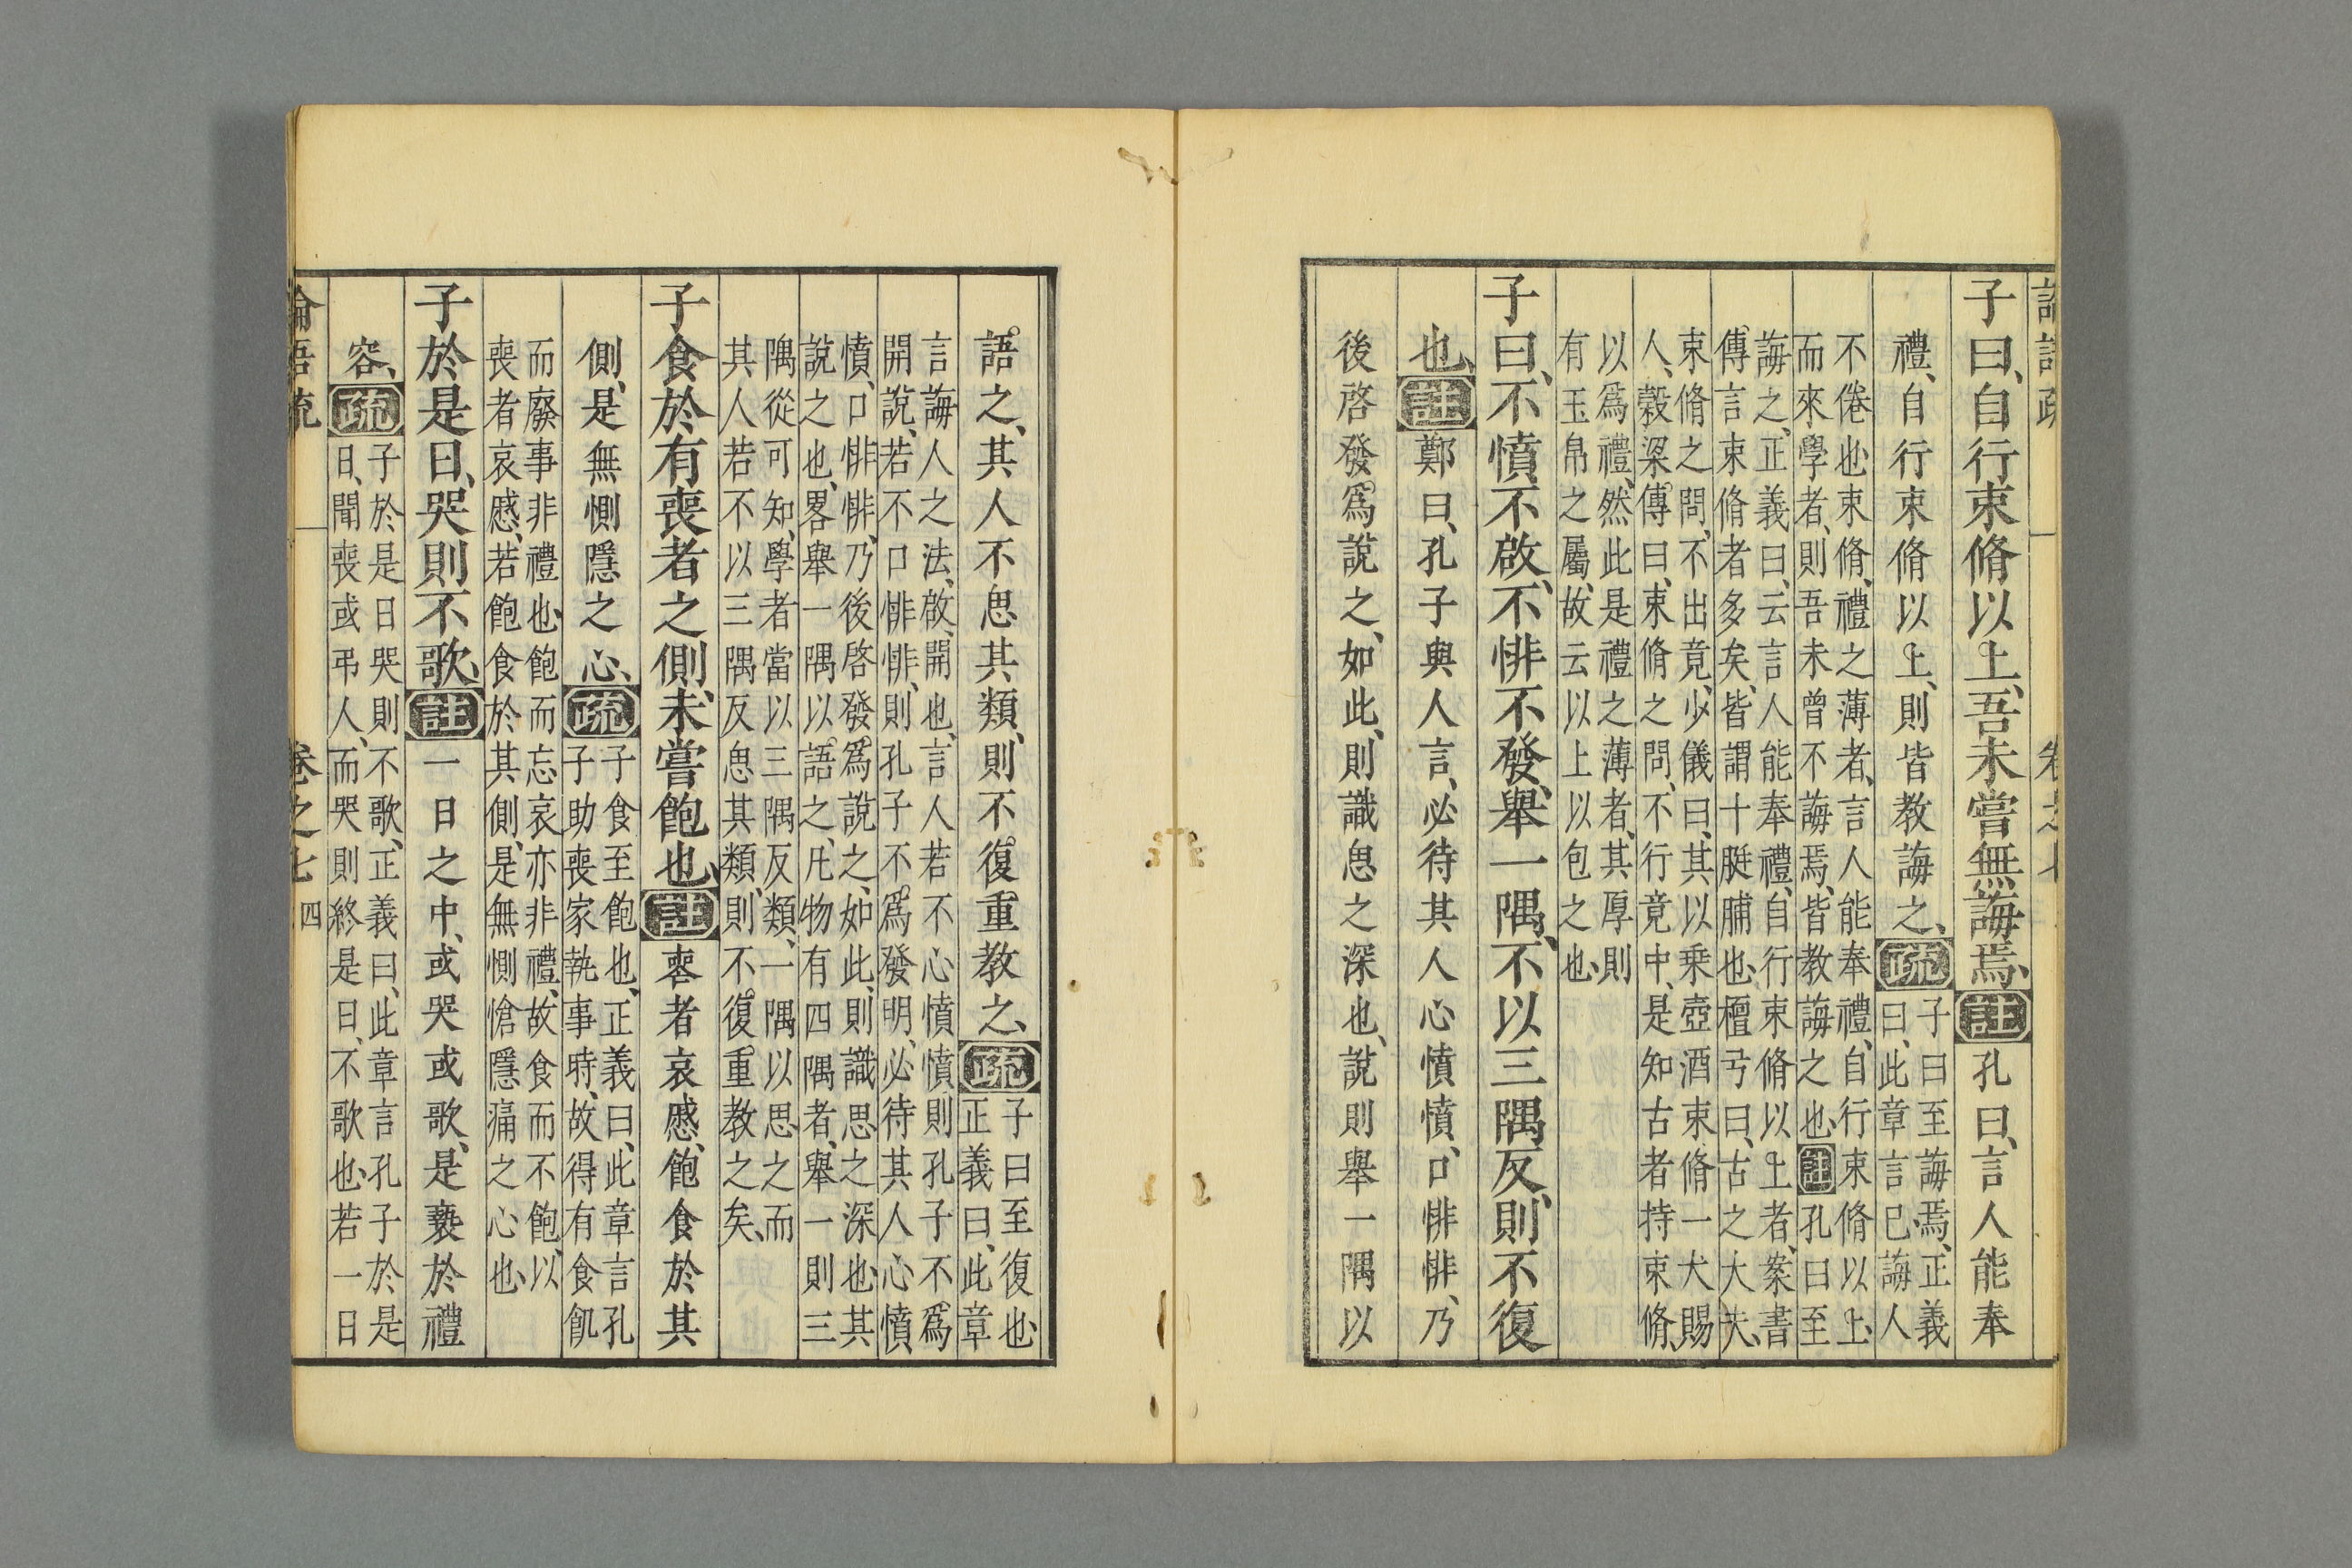 子曰、自行束脩以上、吾未嘗無誨焉、註孔曰、言人能奉
禮、自行束脩以上、則皆教誨之、疏
子曰至誨焉、正義
曰、此章言已誨人
不倦也、束脩、禮之薄者、言人能奉禮、自行束脩以上、
而來學者、則吾未曾不誨焉、皆教誨之也、註孔曰至
誨之、正義曰、云言人能奉禮、自行束脩以上者、案書
傳言束脩者多矣、皆謂十脡脯也、檀弓曰、古之大夫、
束脩之問、不出竟、少儀曰、其以乗壺酒束脩一犬賜
人、糓梁傳曰、束脩之問、不行竟中、是知古者持束脩、
以爲禮、然此是禮之薄者、其厚則
有玉帛之屬、故云以上以包之也、
子曰、不憤不啟、不悱不發、舉一隅、不以三隅反、則不復
也、註鄭曰、孔子與人言、必待其人心憤憤、口悱悱、乃
後啓發爲說之、如此、則識思之深也、說則舉一隅以
語之、其人不思其類、則不復重教之、疏
子曰至復也、
正義曰、此章
言誨人之法、啟、開也、言人若不心憤憤則孔子不爲
開說、若不口悱悱、則孔子不爲發明、必待其人心憤
憤、口悱悱、乃後啓發爲說之、如此、則識思之深也、其
說之也、畧舉一隅以語之、凡物有四隅者、舉一則三
隅從可知、學者當以三隅反類、一隅以思之而
其人若不以三隅反思其類、則不復重教之矣、
子食於有喪者之側、未嘗飽也、註喪者哀慼、飽食於其
側、是無惻隱之心、疏
子食至飽也、正義曰、此章言孔
子助喪家執事時、故得有食飢
而廢事非禮也、飽而忘哀亦非禮、故食而不飽、以
喪者哀慼、若飽食於其側、是無惻愴隱痛之心也、
子於是日、哭則不歌、註一日之中、或哭或歌、是褻於禮
容、疏
子於是日哭則不歌、正義曰、此章言孔子於是
日、聞喪或弔人、而哭則終是日、不歌也、若一日
卷之七 四